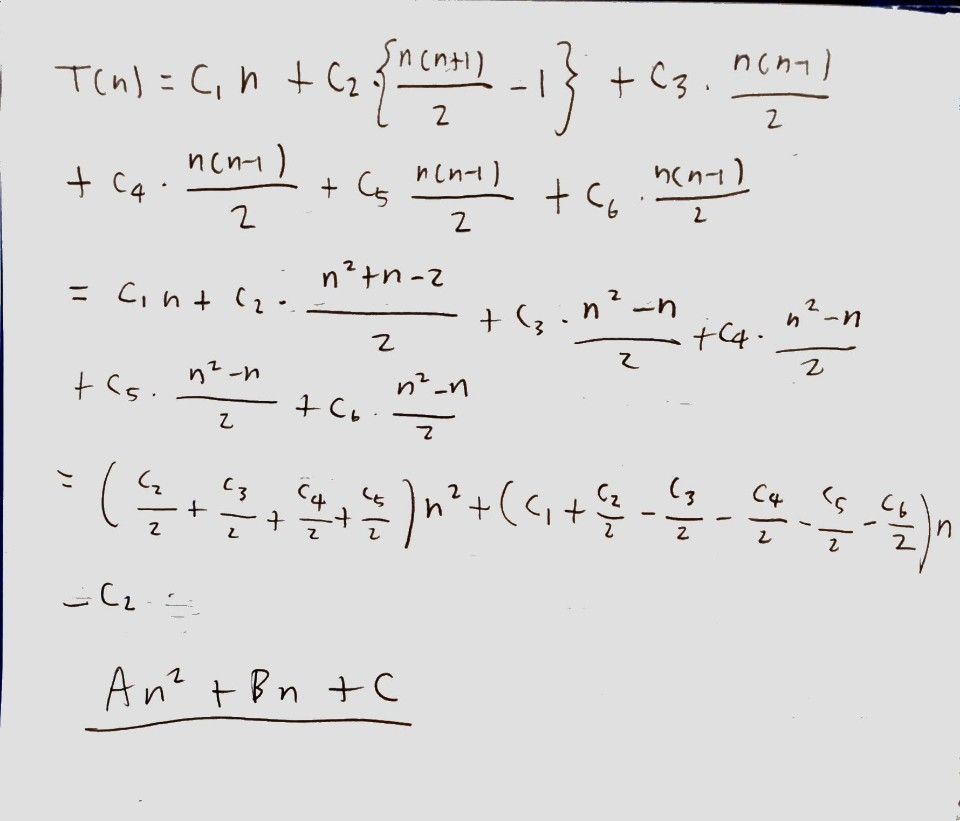 T(n) = C₁ n + C₂ {n(n+1)/2 - 1} + C₃ . n(n-1)/2
+ C₄ . n(n-1)/2 + C₅ n(n-1)/2 + C₆ . n(n-1)/2
= C₁ n + C₂ . n²+n-2/2 + C₃ . n²-n/2 + C₄ . n²-n/2
+ C₅ . n²-n/2 + C₆ . n²-n/2
= (C₂/2 + C₃/2 + C₄/2 + C₅/2) n² + (C₁ + C₂/2 - C₃/2 - C₄/2 - C₅/2 - C₆/2) n
- C₂
An² + Bn + C